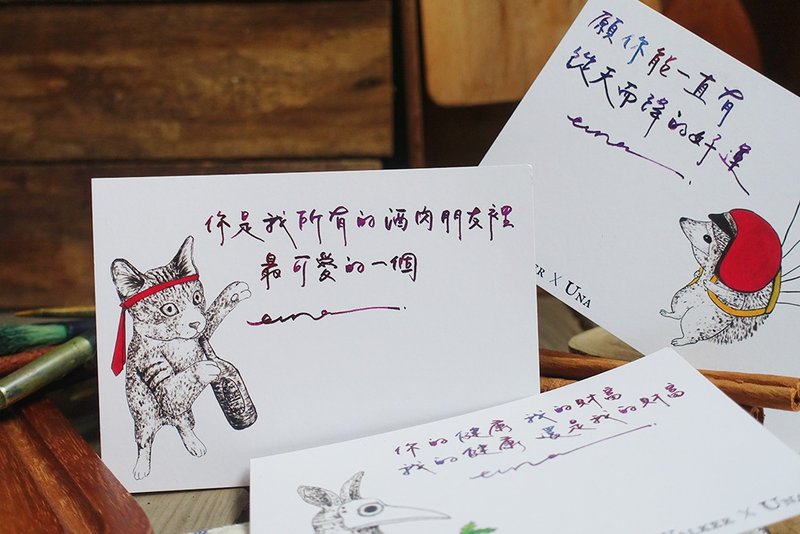 你是我所有的酒肉朋友裡
最可愛的一個
una
願你能一直有
從天而降的好運
una
X UNA
你的健康 我的財富
我的健康 還是我的財富
una
X UNA